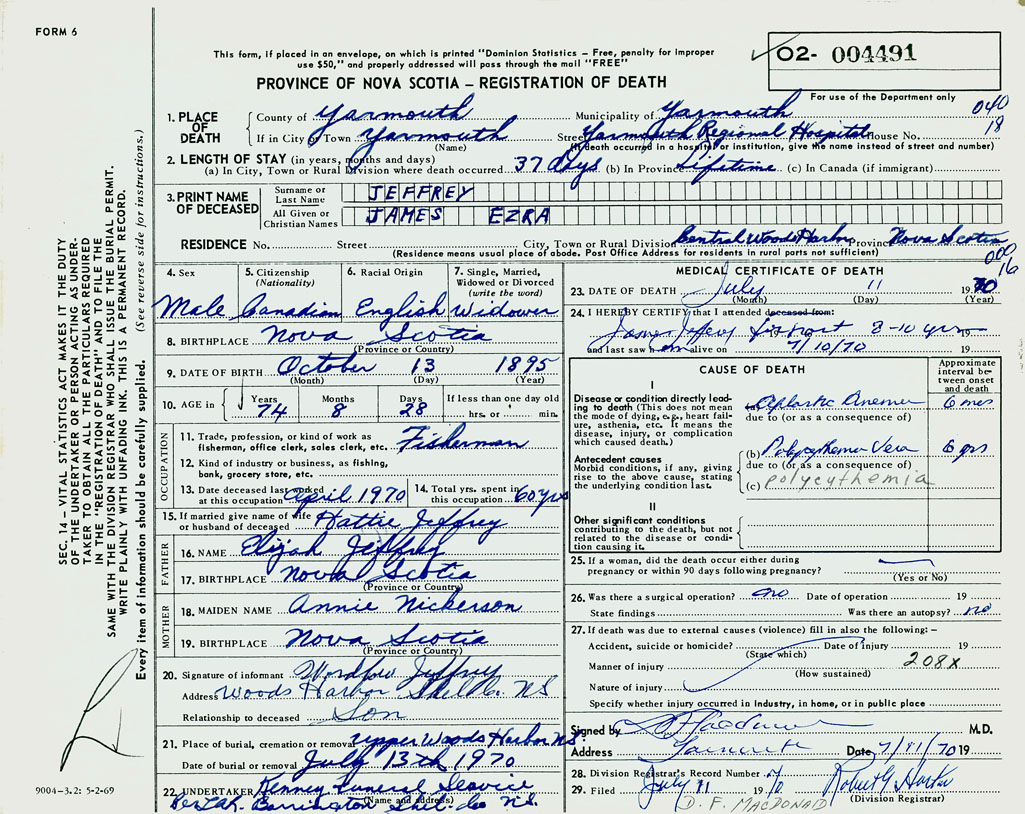 FORM 6
This form, if placed in an envelope, on which is printed "Dominion Statistics – Free, penalty for improper
use $50," and properly addressed will pass through the mail "FREE"
O2- 004491
PROVINCE OF NOVA SCOTIA – REGISTRATION OF DEATH
For use of the Department only
040
18
1. PLACE OF DEATH
County of Yarmouth Municipality of Yarmouth
If in City or Town Yarmouth Street Yarmouth Regional Hospital House No.
(Name) (If death occurred in a hospital or institution, give the name instead of street and number)
2. LENGTH OF STAY (in years, months and days)
(a) In City, Town or Rural Division where death occurred 37 days (b) In Province Lifetime (c) In Canada (if immigrant)
3. PRINT NAME OF DECEASED
Surname or Last Name JEFFREY
All Given or Christian Names JAMES EZRA
RESIDENCE No. Street City, Town or Rural Division Central Woods Harbor Province Nova Scotia
(Residence means usual place of abode. Post Office Address for residents in rural parts not sufficient)
000
16
4. Sex
Male
5. Citizenship
(Nationality)
Canadian
6. Racial Origin
English
7. Single, Married,
Widowed or Divorced
(write the word)
Widower
8. BIRTHPLACE Nova Scotia
(Province or Country)
9. DATE OF BIRTH October 13 1895
(Month) (Day) (Year)
10. AGE in
Years Months Days If less than one day old
74 8 28 hrs. or min.
OCCUPATION
11. Trade, profession, or kind of work as
fisherman, office clerk, sales clerk, etc. Fisherman
12. Kind of industry or business, as fishing,
bank, grocery store, etc.
13. Date deceased last worked
at this occupation April 1970
14. Total yrs. spent in
this occupation 60 yrs
15. If married give name of wife
or husband of deceased Hattie Jeffrey
FATHER
16. NAME Elijah Jeffrey
17. BIRTHPLACE Nova Scotia
(Province or Country)
MOTHER
18. MAIDEN NAME Annie Nickerson
19. BIRTHPLACE Nova Scotia
(Province or Country)
20. Signature of informant Jeffrey
Address Woods Harbor Shel. Co. NS
Relationship to deceased Son
21. Place of burial, cremation or removal Upper Woods Harbor NS
Date of burial or removal July 13th 1970
22. UNDERTAKER Kenney Funeral Service
(Name and address)
Barrington Shel. Co N.S.
MEDICAL CERTIFICATE OF DEATH
23. DATE OF DEATH July 11 1970
(Month) (Day) (Year)
24. I HEREBY CERTIFY that I attended deceased from:
James Jeffrey for past 8-10 yrs 19
and last saw h em alive on 7/10/70 19
CAUSE OF DEATH
Approximate
interval between
onset
and death
I
Disease or condition directly leading
to death (This does not mean
the mode of dying, e.g., heart failure,
asthenia, etc. It means the
disease, injury, or complication
which caused death.)
(a) Aplastic Anemia 6 mos
due to (or as a consequence of)
Antecedent causes
Morbid conditions, if any, giving
rise to the above cause, stating
the underlying condition last.
(b) Polycythemia Vera 6 yrs
due to (or as a consequence of)
(c) polycythemia
II
Other significant conditions
contributing to the death, but not
related to the disease or condition
causing it.
25. If a woman, did the death occur either during
pregnancy or within 90 days following pregnancy?
(Yes or No)
26. Was there a surgical operation? no Date of operation 19
State findings Was there an autopsy? no
27. If death was due to external causes (violence) fill in also the following: –
Accident, suicide or homicide? Date of injury 19
(State which)
208X
Manner of injury
(How sustained)
Nature of injury
Specify whether injury occurred in industry, in home, or in public place
Signed by M.D.
Address Yarmouth Date 7/11/70 19
28. Division Registrar's Record Number
29. Filed July 11 1970 Robert G.
(Division Registrar)
D. F. MACDONALD
SEC. 14 – VITAL STATISTICS ACT MAKES IT THE DUTY
OF THE UNDERTAKER OR PERSON ACTING AS UNDERTAKER
TO OBTAIN ALL THE PARTICULARS REQUIRED
IN THE "REGISTRATION OF DEATH" AND TO FILE THE
SAME WITH THE DIVISION REGISTRAR WHO SHALL ISSUE THE BURIAL PERMIT.
WRITE PLAINLY WITH UNFADING INK. THIS IS A PERMANENT RECORD.
Every item of information should be carefully supplied. (See reverse side for instructions.)
9004–3.2: 5-2-69